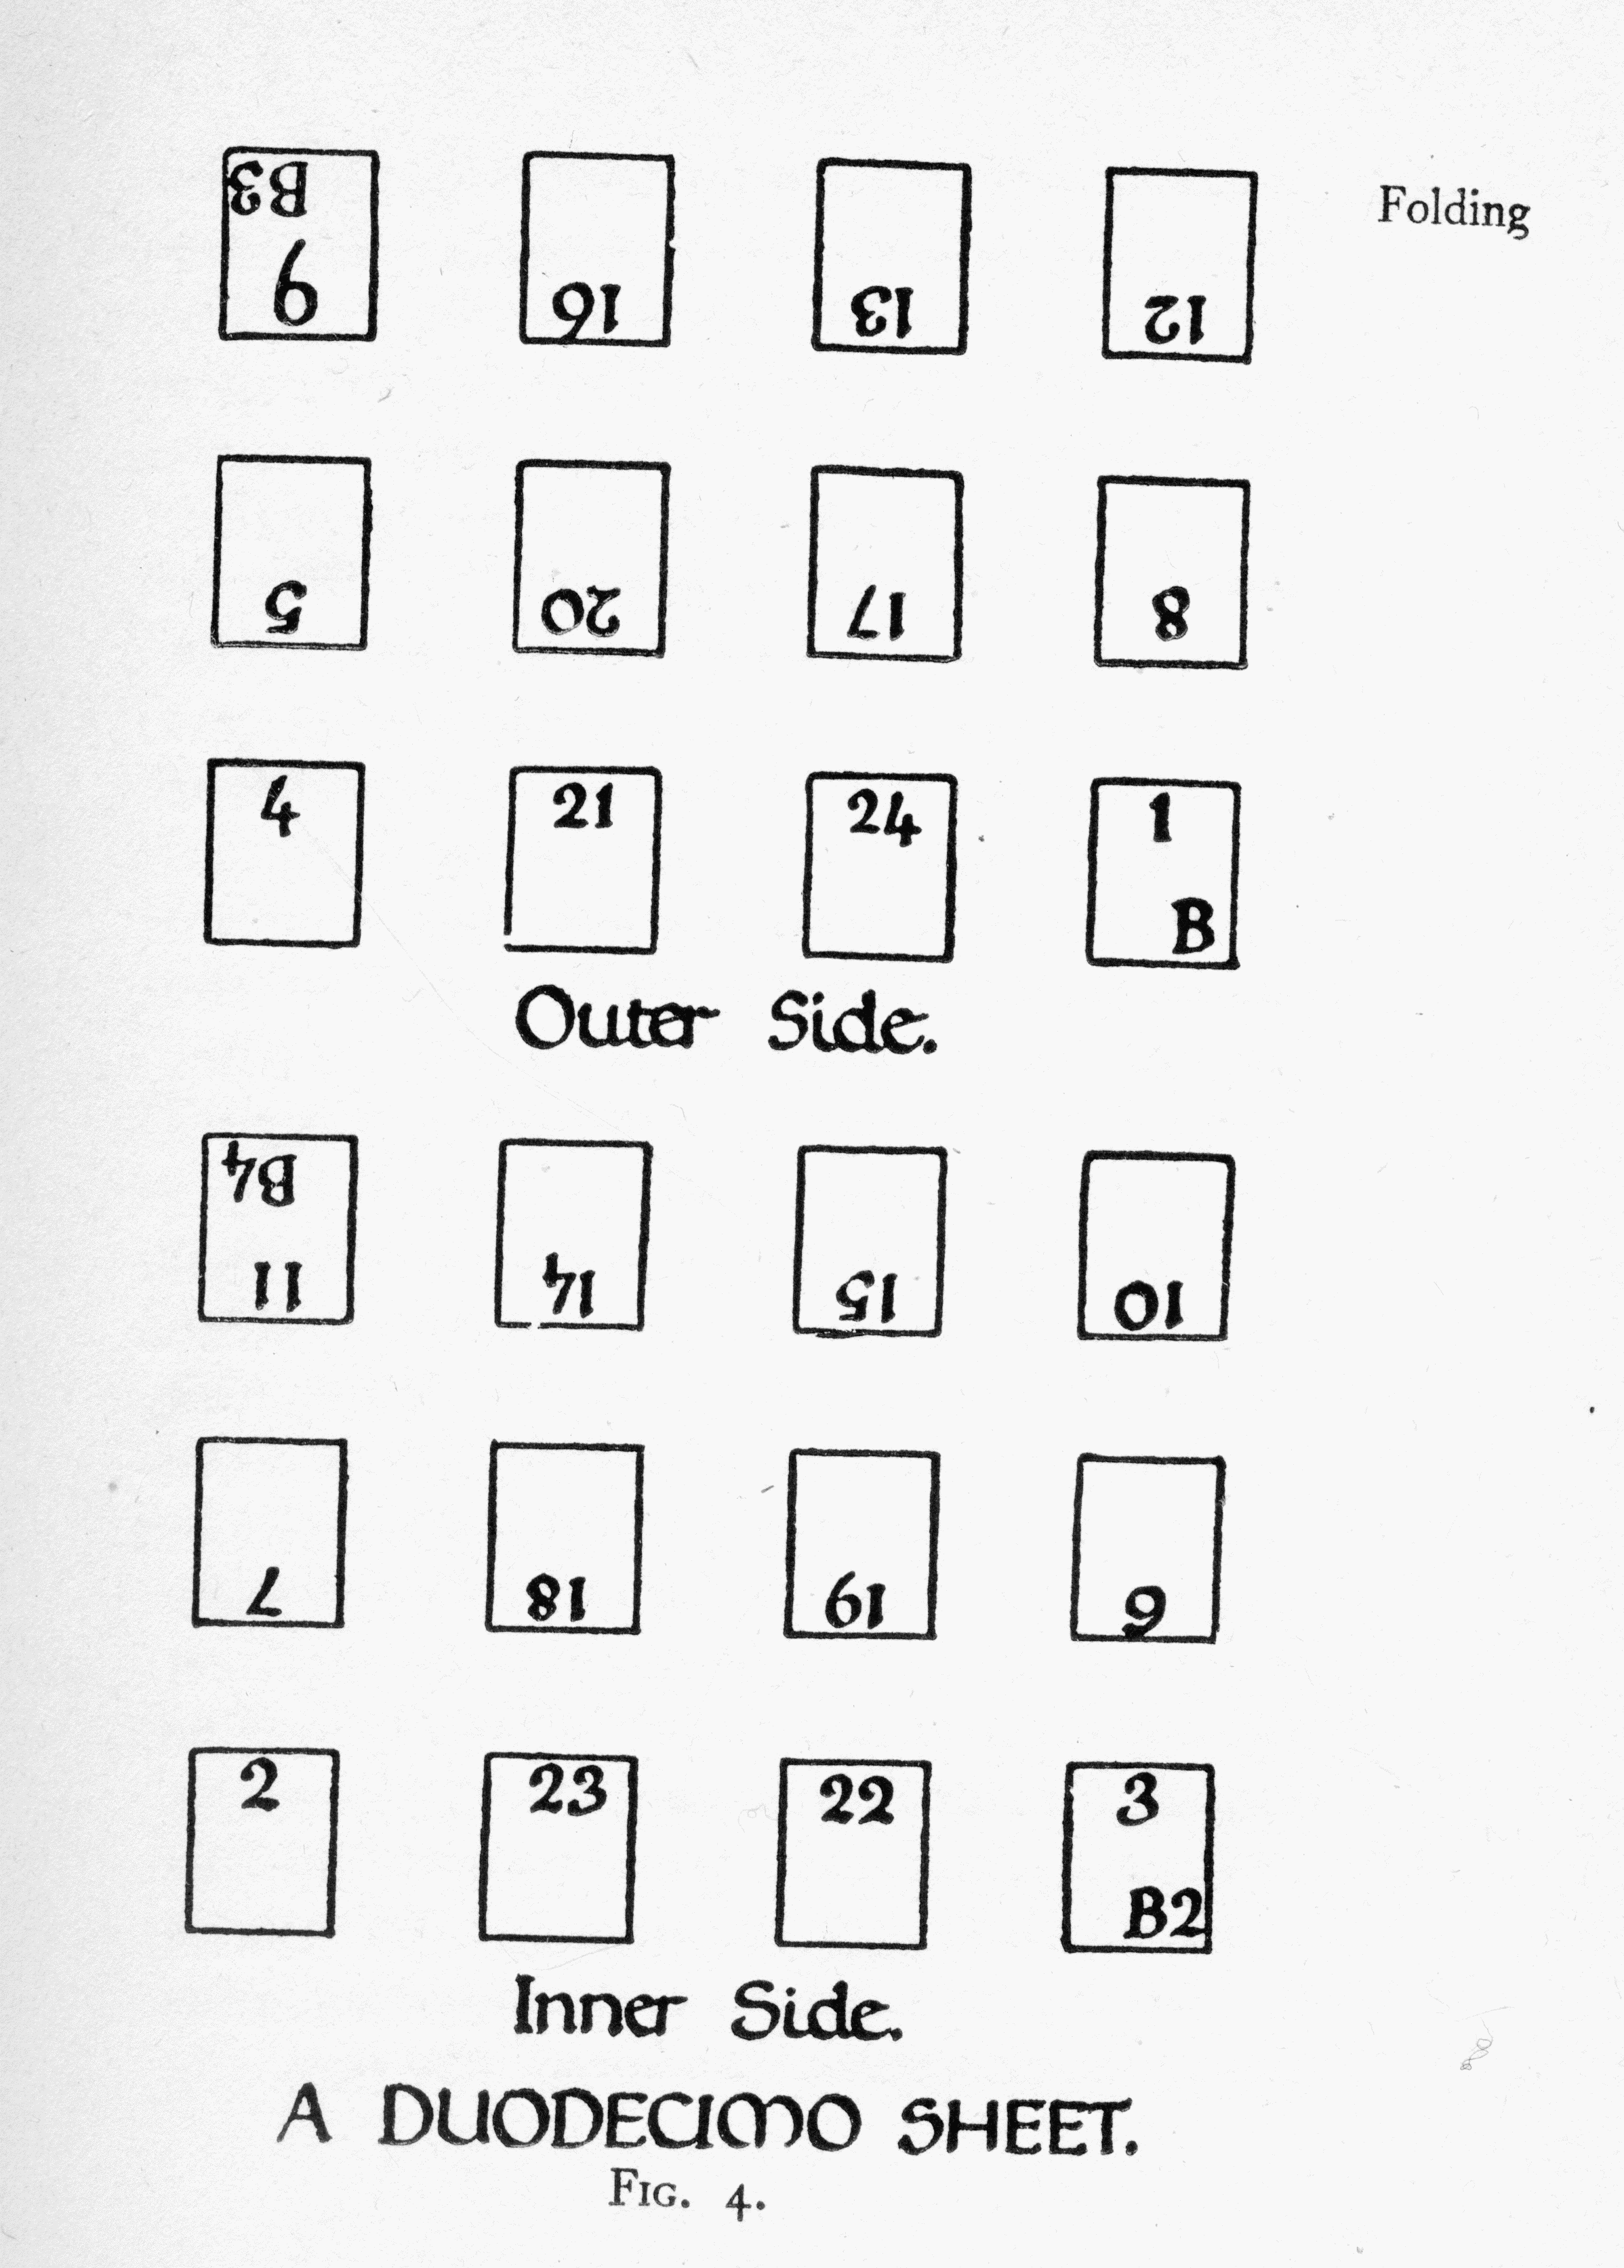 B3 Folding
9 16 13 12
5 20 17 8
4 21 24 1
B
Outer Side.
B4
11 14 15 10
7 18 19 6
2 23 22 3
B2
Inner Side.
A DUODECIMO SHEET.
FIG. 4.